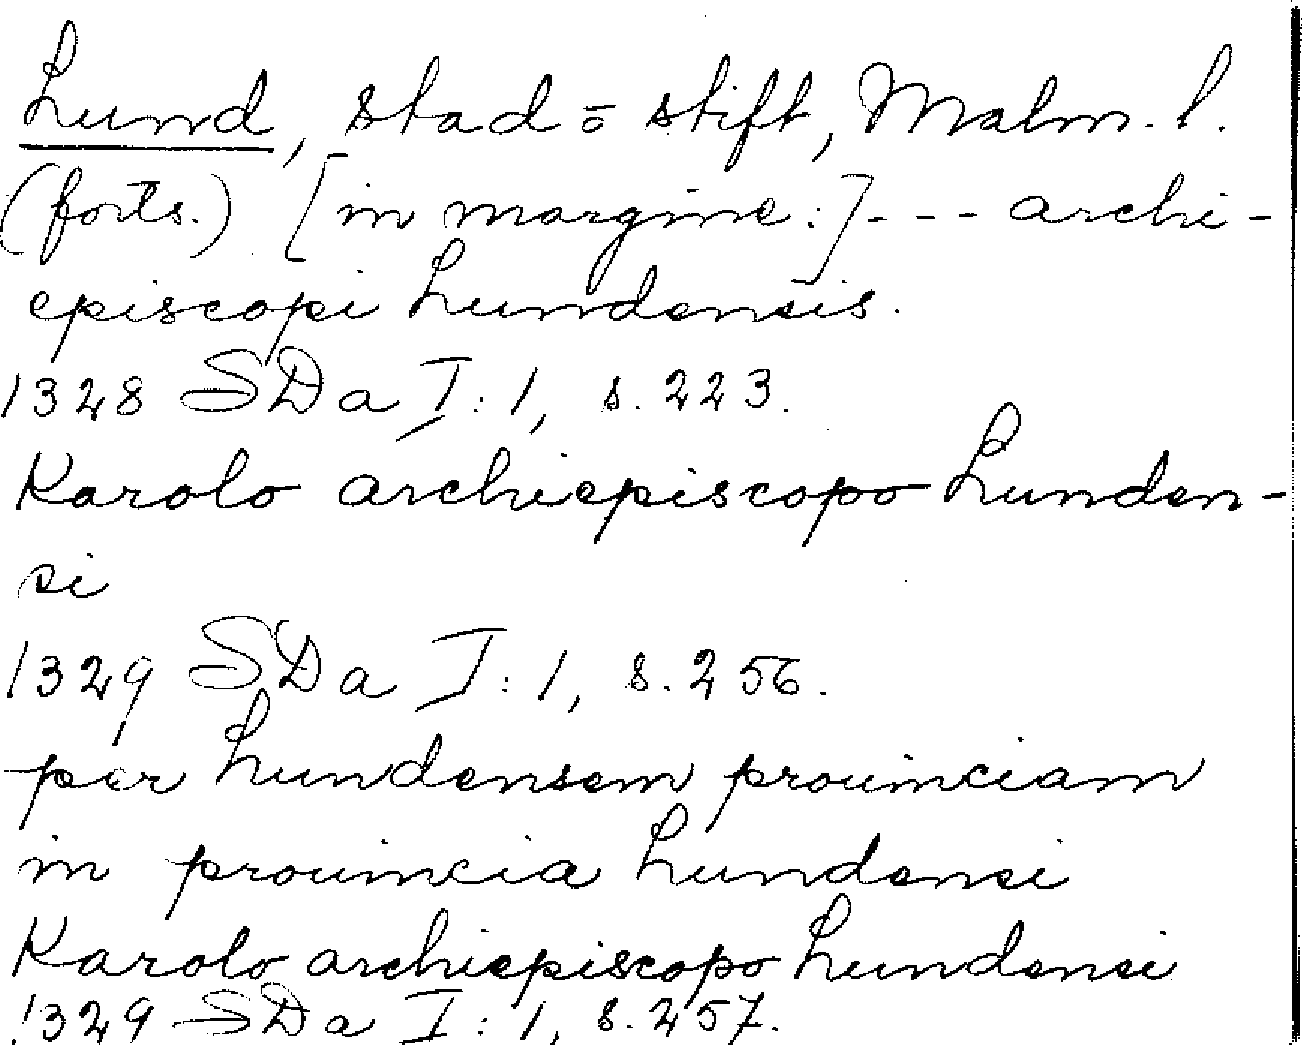 Lund, stad o stift, Malm. l.
(forts.) [in margine:] --- archi-
episcopi Lundensis.
1328 SDa I:1, s. 223.
Karolo archiepiscopo Lunden-
si
1329 SDa I:1, s. 256.
per Lundensem prouinciam
in prouincia Lundensi
Karolo archiepiscopo Lundensi
1329 SDa I:1, s. 257.